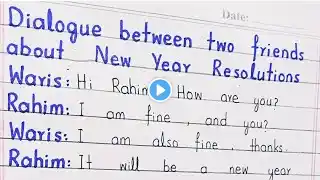 Date:
Dialogue between two friends
about New Year Resolutions
Waris: Hi Rahim How are you?
Rahim: I am fine, and you?
Waris: I am also fine, thanks.
Rahim: It will be a new year